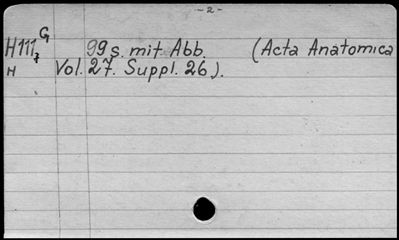 - 2 -
G
H111, 99 s. mit Abb. (Acta Anatomica
H Vol. 27. Suppl. 26).